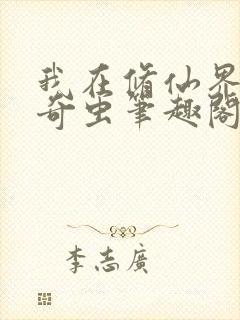 我在修仙界
奇虫笔趣阁
李志廣